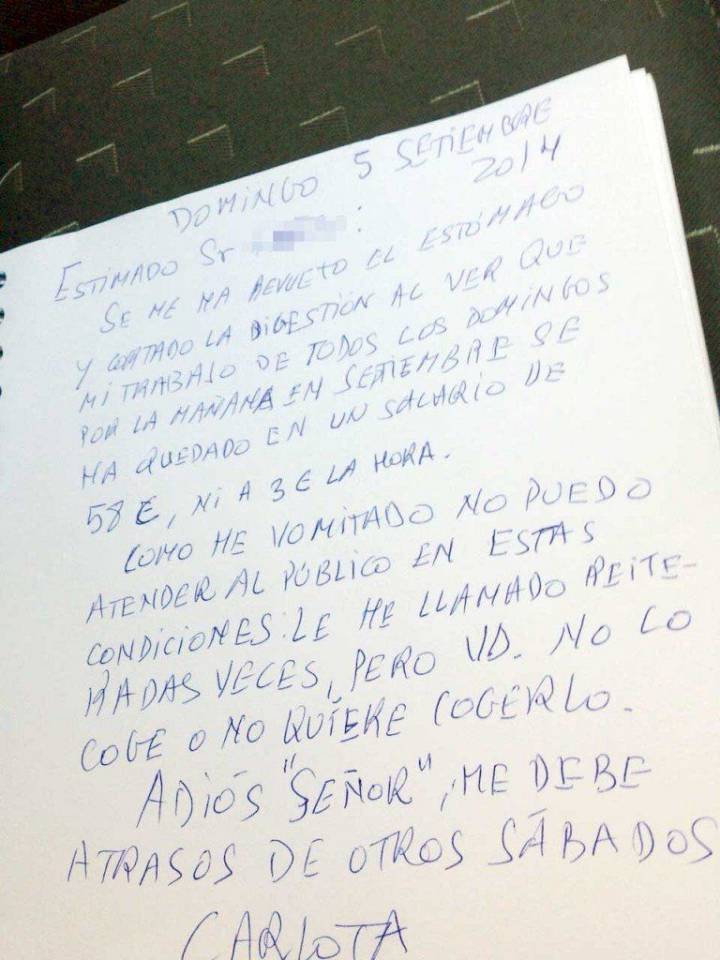 DOMINGO 5 SETIEMBRE
2014
ESTIMADO Sr :
SE ME HA REVUETO EL ESTÓMAGO
Y CORTADO LA DIGESTIÓN AL VER QUE
MI TRABAJO DE TODOS LOS DOMINGOS
POR LA MAÑANA EN SETIEMBRE SE
HA QUEDADO EN UN SALARIO DE
58 €, NI A 3 € LA HORA.
COMO HE VOMITADO NO PUEDO
ATENDER AL PÚBLICO EN ESTAS
CONDICIONES. LE HE LLAMADO REITE-
RADAS VECES, PERO VD. NO LO
COGE O NO QUIERE COGERLO.
ADIÓS "SEÑOR", ME DEBE
ATRASOS DE OTROS SÁBADOS
CARLOTA